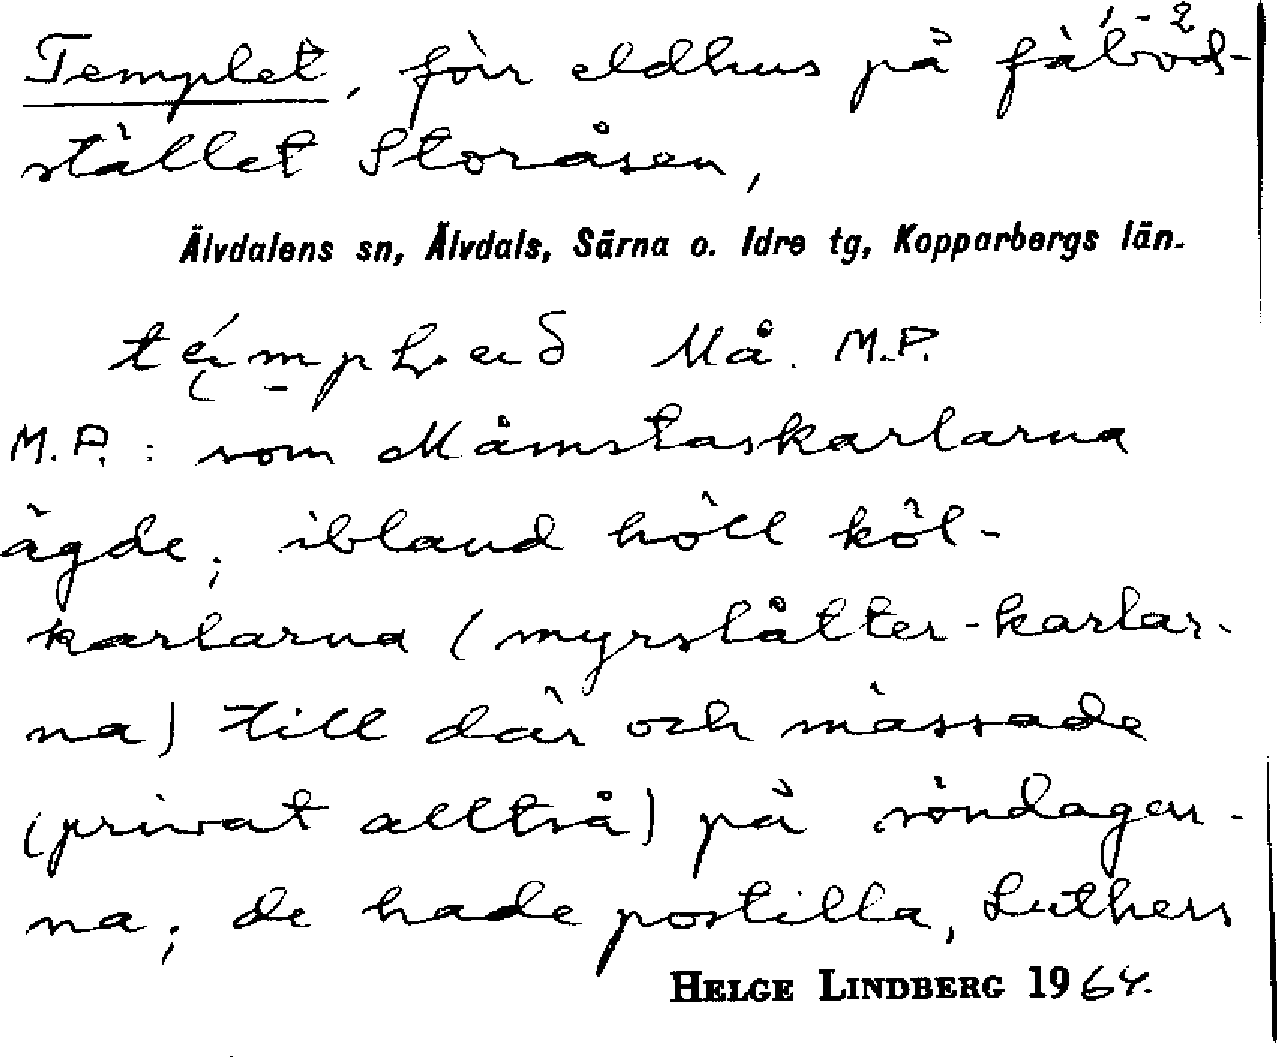 1-2
Templet, förr eldhus på fäbod-
stället Storåsen,
Älvdalens sn, Älvdals, Särna o. Idre tg, Kopparbergs län.
Må. M.P.
M.P. : som Månstaskarlarna
ägde; ibland höll köl-
karlarna (myrslåtter-karlar-
na) till där och mässade
(privat alltså) på söndagar-
na; de hade postilla, Luthers
HELGE LINDBERG 1964.